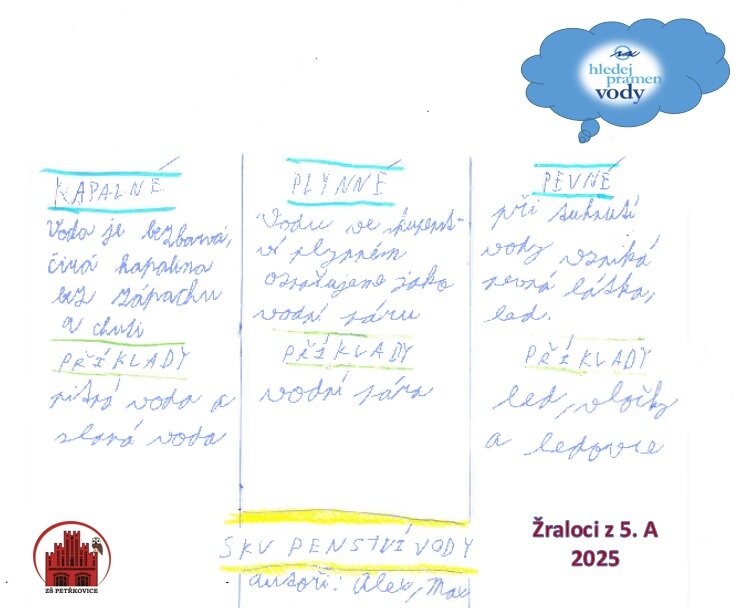 hledej
pramen
vody
KAPALNÉ
Voda je bezbarvá,
čirá kapalina
bez zápachu
a chuti
PŘÍKLADY
pitná voda a
slaná voda
PLYNNÉ
Vodu ve skupenst-
ví plynném
označujeme jako
vodní páru
PŘÍKLADY
vodní pára
PEVNÉ
při tuhnutí
vody vzniká
pevná látka,
led.
PŘÍKLADY
led, vločky
a ledovce
SKUPENSTVÍ VODY
autoři: Alex, Max
Žraloci z 5. A
2025
ZŠ PETŘKOVICE